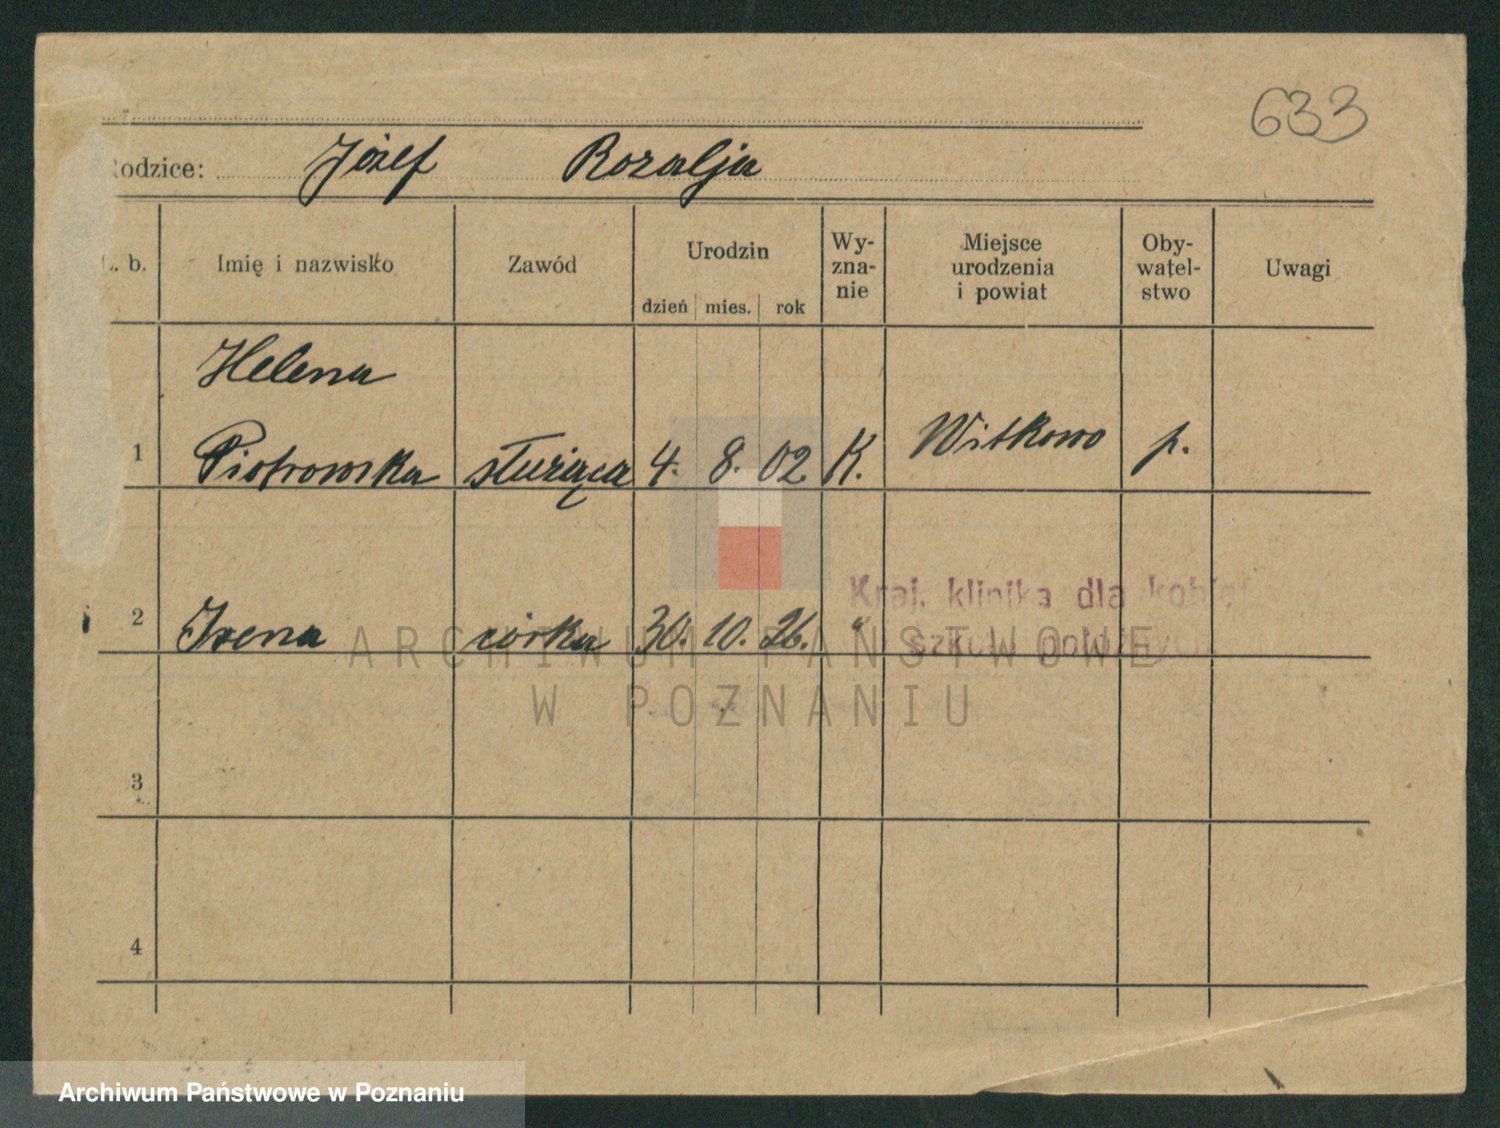 633
Rodzice: Józef Rozalja
L. b. Imię i nazwisko Zawód Urodzin dzień mies. rok Wy- zna- nie Miejsce urodzenia i powiat Oby- watel- stwo Uwagi
1 Helena Piotrowska służąca 4. 8. 02 K. Witkowo p.
2 Irena córka 30. 10. 26. "
Kraj. klinika dla kobiet
szkoła położnych
3
4
ARCHIWUM PAŃSTWOWE
W POZNANIU
Archiwum Państwowe w Poznaniu